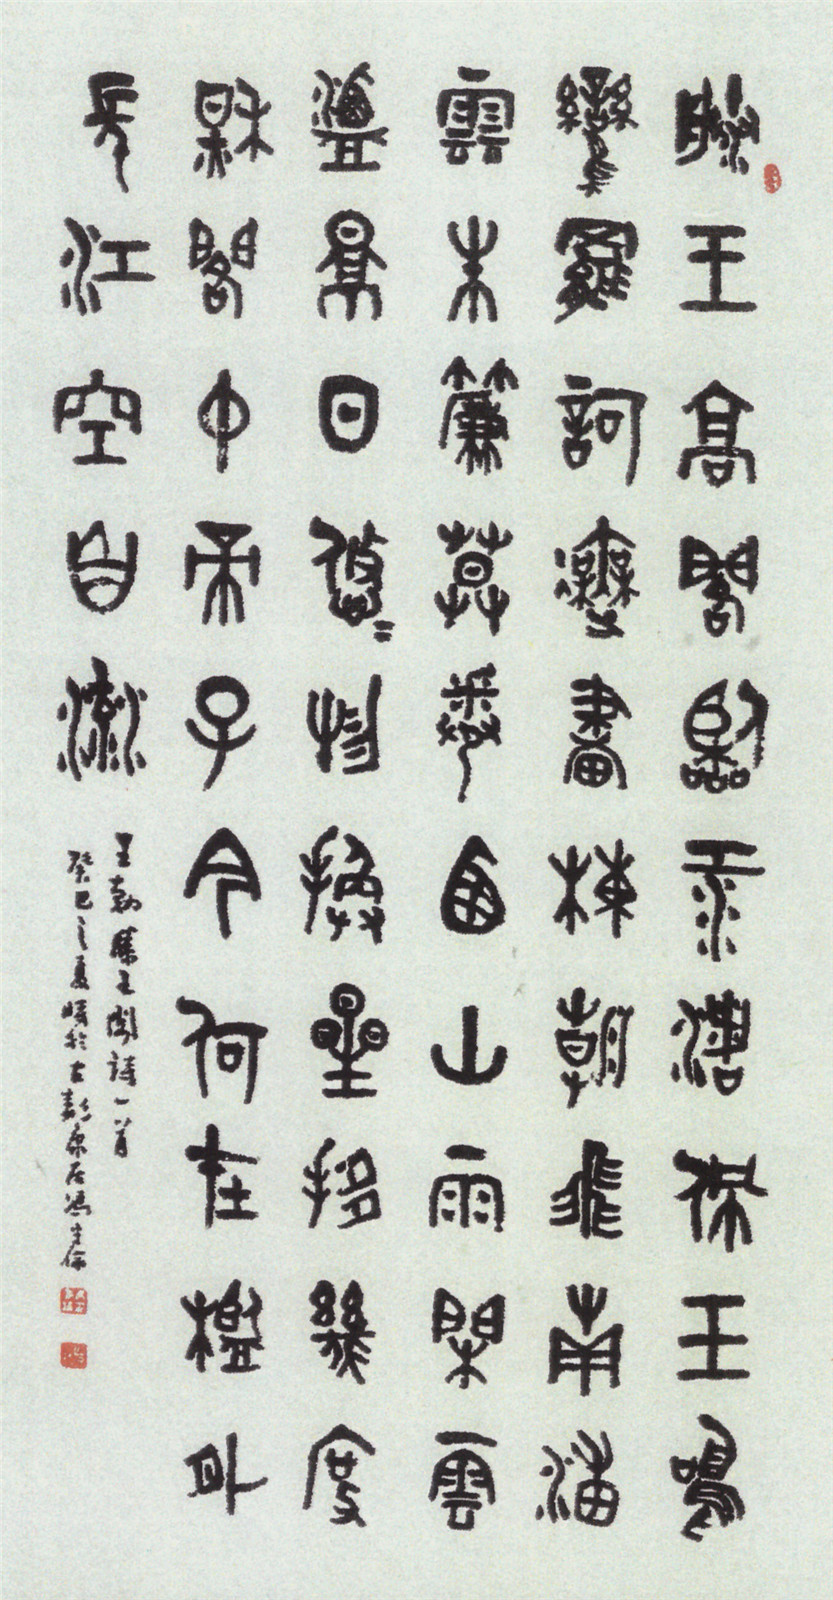 滕王高閣臨江渚佩玉鳴
鸞罷歌舞畫棟朝飛南浦
雲朱簾暮捲西山雨閒雲
潭景日悠〻物換星移幾度
秋閣中帝子今何在檻外
長江空自流
王勃滕王閣詩一首
癸巳之夏於古彭居馮